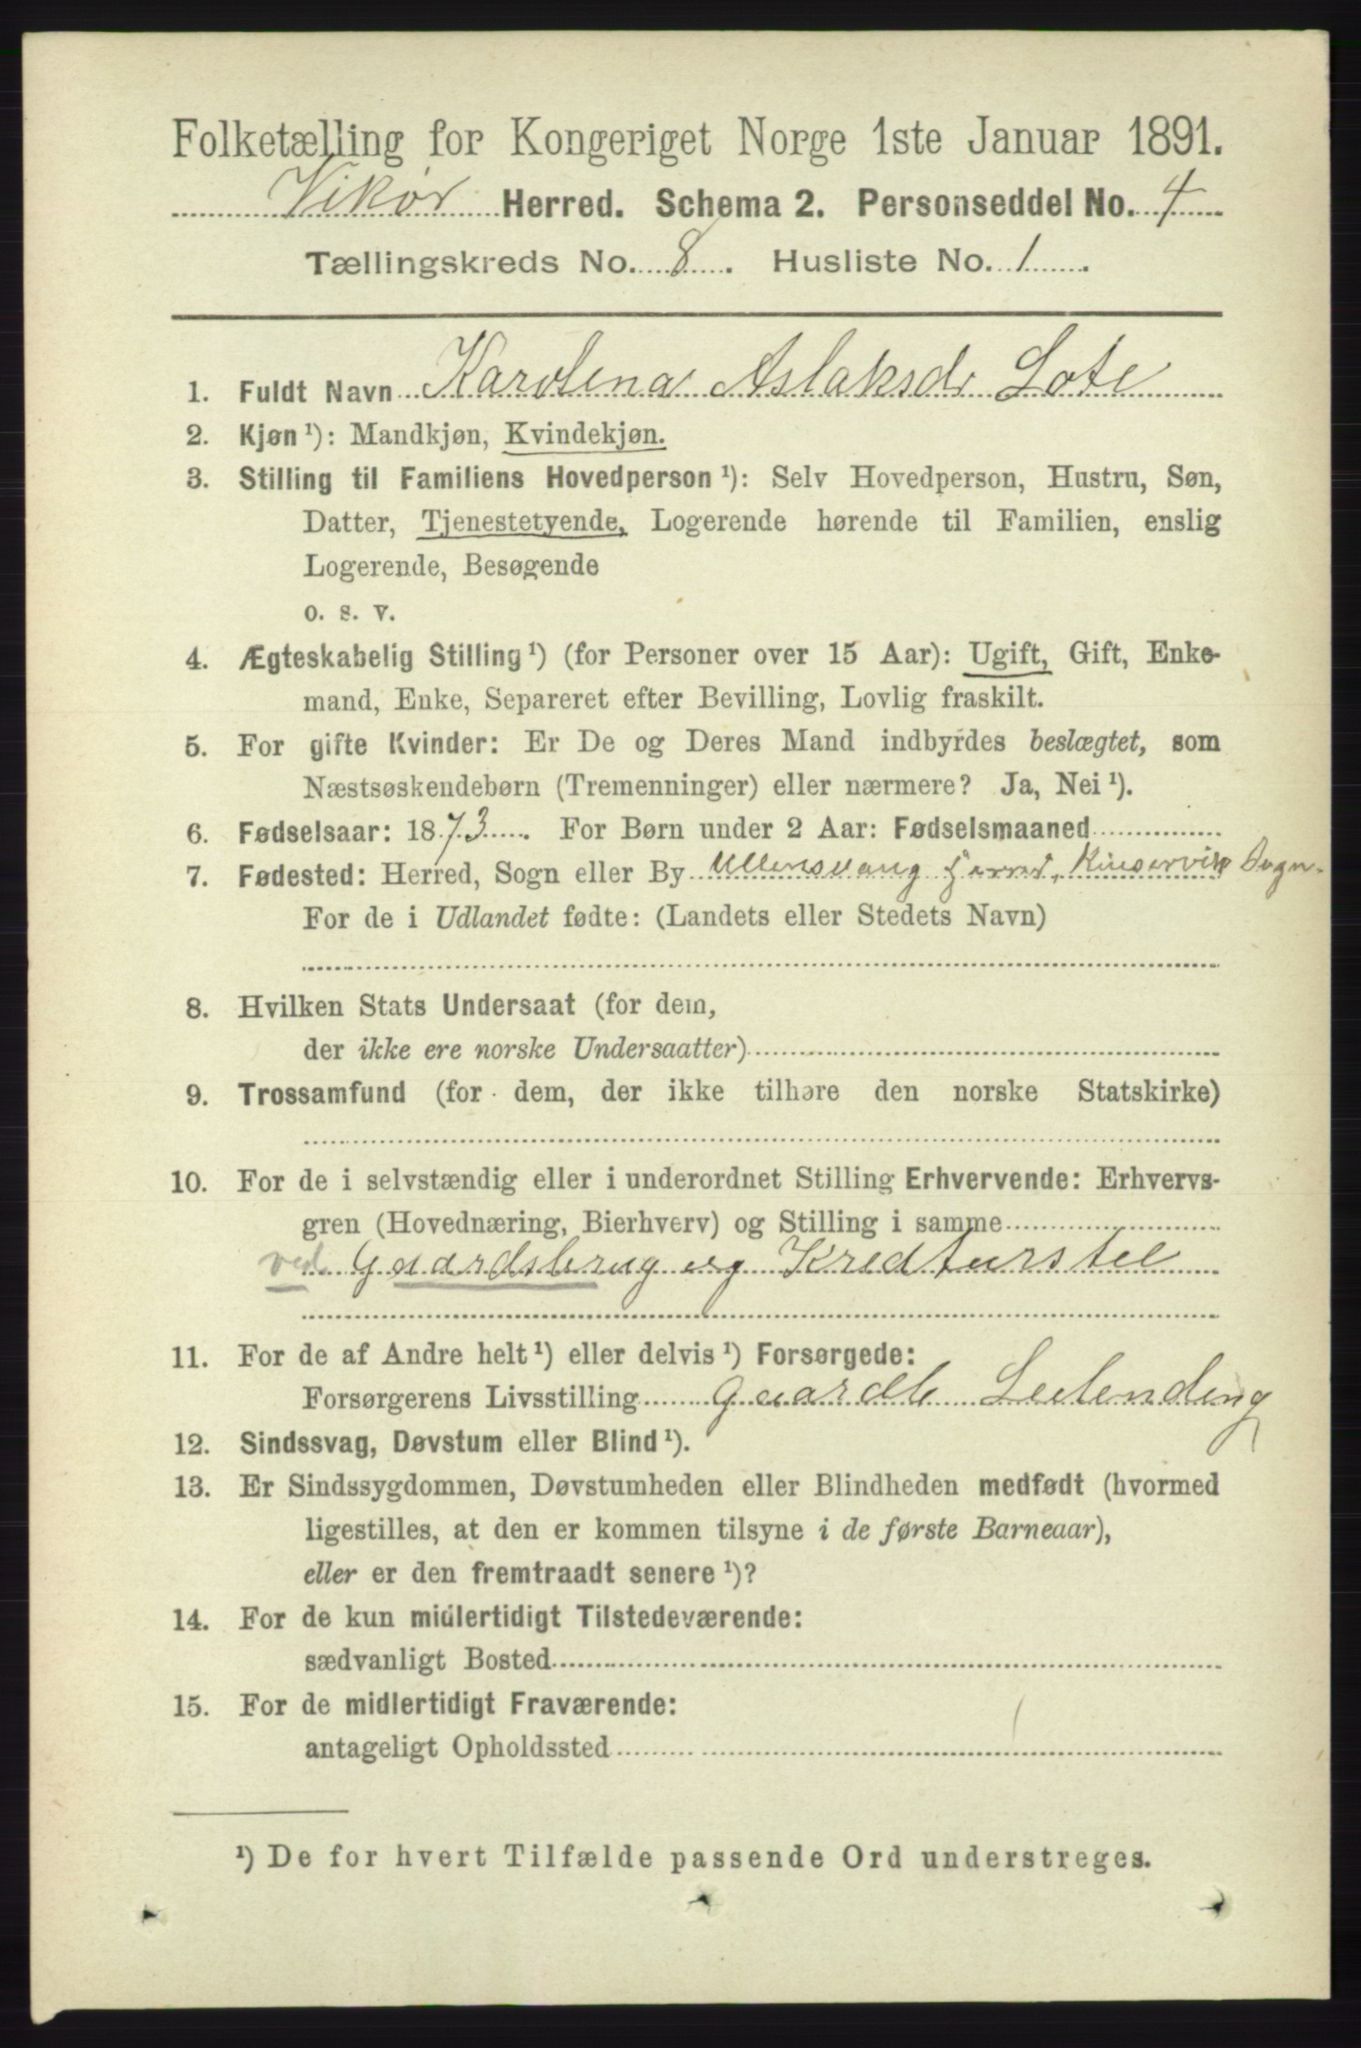 Folketælling for Kongeriget Norge 1ste Januar 1891.
Vikør Herred. Schema 2. Personseddel No. 4
Tællingskreds No. 8. Husliste No. 1.
1. Fuldt Navn Karolena Aslaksdr Lote
2. Kjøn ¹): Mandkjøn, Kvindekjøn.
3. Stilling til Familiens Hovedperson ¹): Selv Hovedperson, Hustru, Søn,
Datter, Tjenestetyende, Logerende hørende til Familien, enslig
Logerende, Besøgende
o. s. v.
4. Ægteskabelig Stilling ¹) (for Personer over 15 Aar): Ugift, Gift, Enke-
mand, Enke, Separeret efter Bevilling, Lovlig fraskilt.
5. For gifte Kvinder: Er De og Deres Mand indbyrdes beslægtet, som
Næstsøskendebørn (Tremenninger) eller nærmere? Ja, Nei ¹).
6. Fødselsaar: 1873. For Børn under 2 Aar: Fødselsmaaned
7. Fødested: Herred, Sogn eller By Ullensvang Herred, Kinservik Sogn.
For de i Udlandet fødte: (Landets eller Stedets Navn)
8. Hvilken Stats Undersaat (for dem,
der ikke ere norske Undersaatter)
9. Trossamfund (for dem, der ikke tilhøre den norske Statskirke)
10. For de i selvstændig eller i underordnet Stilling Erhvervende: Erhvervs-
gren (Hovednæring, Bierhverv) og Stilling i samme
ved Gaardsbrug og Kredturstel
11. For de af Andre helt ¹) eller delvis ¹) Forsørgede:
Forsørgerens Livsstilling Gaardb Leilending
12. Sindssvag, Døvstum eller Blind ¹).
13. Er Sindssygdommen, Døvstumheden eller Blindheden medfødt (hvormed
ligestilles, at den er kommen tilsyne i de første Barneaar),
eller er den fremtraadt senere ¹)?
14. For de kun midlertidigt Tilstedeværende:
sædvanligt Bosted
15. For de midlertidigt Fraværende:
antageligt Opholdssted
¹) De for hvert Tilfælde passende Ord understreges.